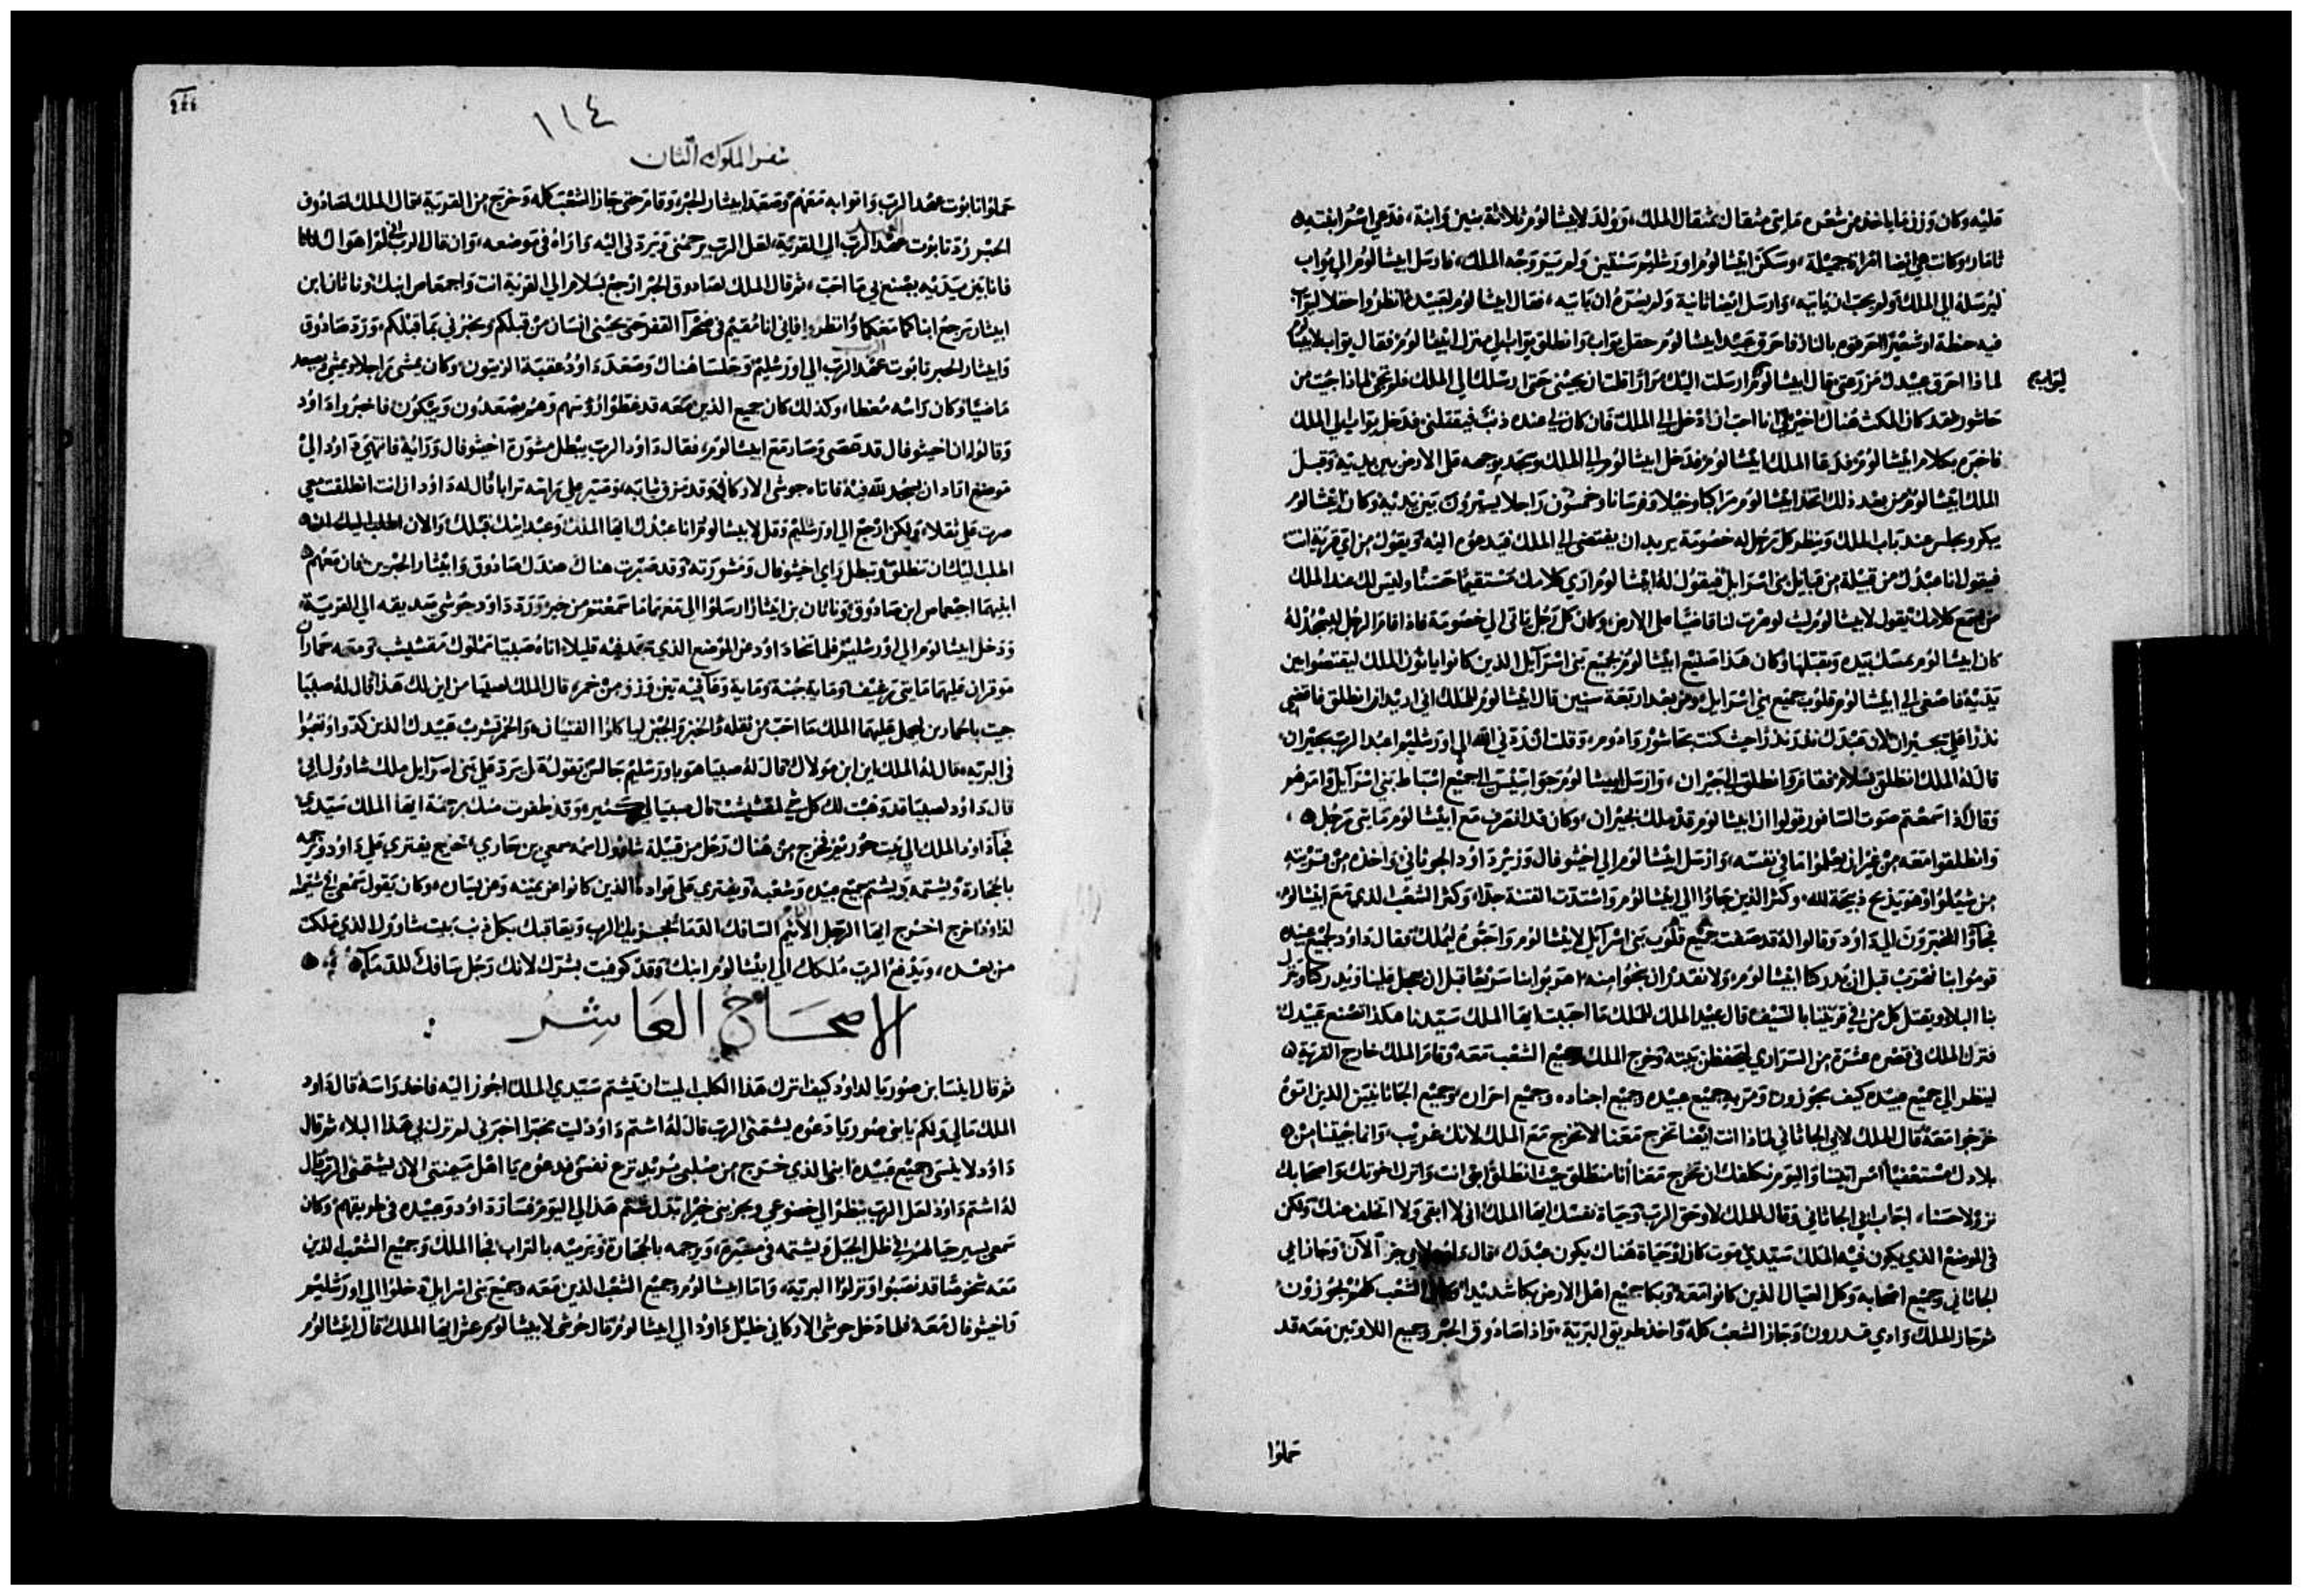 عليه وكان وزن ما ياخذ من شعره مايتي مثقال بمثقال الملك، وولد لابيشالوم ثلاثة بنين وابنة، فدعي اسم ابنته
ثامار وكانت هي ايضا امراة جميلة، وسكن ابيشالوم اورشليم سنتين ولم ير وجه الملك، فارسل ابيشالوم الي يواب
ليرسله الي الملك ولم يحب ان ياتيه، وارسل ايضا ثانية ولم يسره ان ياتيه، فقال ابيشالوم لعبيده انظروا حقلا ليواب
فيه حنطة او شعير احرقوه بالنار فاحرق عبيد ابيشالوم حقل يواب وانطلق يواب الي منزل ابيشالوم فقال يواب
لماذا احرق عبيدك مزرعتي قال ابيشالوم ارسلت اليك مرارا ان تجيني حتي ارسلك الي الملك فلم تجي لماذا جيت من
حاشور لقد كان المكث هناك اخير لي انا احب ان ادخل الي الملك فان كان لي عنده ذنب فيقتلني فدخل يواب الي الملك
فاخبره بكلام ابيشالوم فدعا الملك ابيشالوم فدخل ابيشالوم الي الملك وسجد بوجهه علي الارض بين يديه وقبل
الملك ابيشالوم من بعد ذلك اتخذ ابيشالوم مراكبا وخيلا وفرسانا وخمسون راجلا يسيرون بين يديه وكان ابيشالوم
يبكر ويجلس عند باب الملك وينظر كل رجل له خصومة يريد ان يقتضي الي الملك فيدعوه اليه ويقول من اي قرية انت
فيقول انا عبدك من قبيلة من قبايل بني اسرايل فيقول له ابيشالوم اري كلامك مستقيما حسنا وليس لك عند الملك
من يسمع كلامك يقول لابيشالوم ليت لو صرت لنا قاضيا علي الارض وكان كل رجل ياتي الي خصومة فاذا قام الرجل ليسجد له
كان ابيشالوم يمسك بيده ويقبلها وكان هذا صنيع ابيشالوم بجميع بني اسرايل الذين كانوا ياتون الملك ليقتضوا بين
يديه فاصغي الي ابيشالوم قلوب جميع بني اسرايل ومن بعد اربعة سنين قال ابيشالوم للملك اني اريد ان انطلق فاقضي
نذرا علي بحبران لان عبدك نذر نذرا حيث كنت بحاشور وادوم، وقلت ان ردني الله الي اورشليم اعبد الرب بحبران
قال له الملك انطلق بسلام فقام وانطلق الي حبران، وارسل ابيشالوم جواسيس الي جميع اسباط بني اسرايل وامرهم
وقال اذا سمعتم صوت السافور قولوا ان ابيشالوم قد ملك بحبران، وكان قد انصرف مع ابيشالوم مايتي رجل
وانطلقوا معه من غير ان يعلموا ما في نفسه، وارسل ابيشالوم الي اخيثوفال وزير داود الجوفاني واخذه من قريته
من شيلوا وهو يذبح ذبيحة لله، وكثر الذين جاوا الي ابيشالوم واشتدت الفتنة جدا، وكثر الشعب الذي مع ابيشالوم
فجاوا المخبرون الي داود وقالوا له قد صغت جميع قلوب بني اسرايل لابيشالوم واحبوه ليملك فقال داود لجميع عبيده
قوموا بنا نهرب قبل ان يدركنا ابيشالوم ولا نقدر ان ننجوا منه هربوا بنا سريعا قبل ان يعجل علينا ويدركنا وينزل
بنا البلا ويقتل كل من في قريتنا بالسيف قال عبيد الملك للملك ما احببت ايها الملك سيدنا هكذا تصنع عبيدك
فترك الملك في قصره عشرة من السراري ليحفظن بيته وخرج الملك وجميع الشعب معه وقام الملك خارج القرية
لينظر الي جميع عبيده كيف يجوزون ومر به جميع عبيده وجميع اجناده وجميع احزابه وجميع الجاثانيين الذين اتوه
خرجوا معه قال الملك لابي الجاثاني لماذا انت ايضا تخرج معنا لا تخرج مع الملك لانك غريب، وانما جيتنا من
بلادك مستعفيا امس اتيتنا واليوم نكلفك ان تخرج معنا انا منطلق حيث انطلق ارجع انت واترك اخوتك واصحابك
نزولا حسنا، اجاب ابي الجاثاني وقال للملك لا وحق الرب وحياة نفسك ايها الملك اني لا ابقي ولا اتخلف عنك ولكن
في الموضع الذي يكون فيه الملك سيدي موت كان او حياة هناك يكون عبدك، قال داود لابي جز الان وجازابي
الجاثاني وجميع اصحابه وكل العيال الذين كانوا معه وبكا جميع اهل الارض بكا شديدا وكان الشعب كلهم يجوزون
ثم جاز الملك وادي قدرون وجاز الشعب كله واخذ طريق البرية، واذا صادوق الحبر وجميع اللاويين معه قد
حملوا
١١٤
سفر الملوك الثان
حملوا تابوت عهد الرب واتوا به معهم وصعد ابيثار الحبر، وقام حتي جاز الشعب كله وخرج من القرية، قال الملك لصادوق
الحبر رد تابوت عهد الرب الي القرية، لعل الرب يرحمني ويردني اليه واراه في موضعه، وان قال الرب اني لم اهواك
فانا بين يديه يصنع بي ما احب، ثم قال الملك لصادوق الحبر ارجع بسلام الي القرية انت واجمعاص ابنك وناثان ابن
ابيثار يرجع ابناكما معكما وانظروا فاني انا مقيم في صحرا القفر حتي يجيني انسان من قبلكم ويخبرني بما قبلكم، ورد صادوق
وابيثار الحبر تابوت عهد الرب الي اورشليم وجلسا هناك وصعد داود عقبة الزيتون، وكان يمشي راجلا ويمشي ويصعد
ماضيا وكان راسه مغطا، وكذلك كان جميع الذين معه قد غطوا رؤسهم وهم يصعدون ويبكون فاخبروا داود
وقالوا ان اخيثوفال قد عصي وصار مع ابيشالوم، فقال داود الرب يبطل مشورة اخيثوفال ورايه فانتهي داود الي
موضع اراد ان يسجد لله فيه فاتاه حوشي الاركاني وقد مزق ثيابه، وصير علي راسه ترابا قال له داود ان انت انطلقت معي
صرت علي ثقلا، ولكن ارجع الي اورشليم وقل لابيشالوم انا عبدك ايها الملك وعبد ابيك قبلك والان اطلب اليك
اطلب اليك ان تنطلق وتبطل راي اخيثوفال ومشورته وقد صيرت هناك عندك صادوق وابيثار الحبرين فان معهم
ابنيهما اجيمعاص ابن صادوق وناثان بن ابيثار ارسلوا الي معهما ما سمعتم من خبر ورد داود حوشي صديقه الي القرية،
ودخل ابيشالوم الي اورشليم فلما تنحا داود عن الموضع الذي سجد فيه قليلا، اتاه صيبا مملوك مفشيشت ومعه حماران
موقران عليهما مايتي رغيف ومايه جبنه ومايه دالية تين وزق من خمر، قال الملك لصيبا من اين لك هذا قال له صيبا
جيت بالحمارين ليحمل عليهما الملك ما احب من ثقله والخبز والجبن لياكلوا الفتيان، والخمر ليشرب عبيدك الذين كدوا وتعبوا
في البريه، قال له الملك اين ابن مولاك قال له صيبا هو باورشليم جالس يقول الان يرد علي بني اسرايل ملك شاوول ابي
قال داود لصيبا قد وهبت لك كل شي لمفشيشت قال صيبا الي وقد ظفرت منك برحمة ايها الملك سيدي
فجا داود الملك الي بيت حوريم فخرج من هناك رجل من قبيلة شاوول اسمه سمعي بن جاري، خرج يفتري علي داود ويرجمه
بالحجارة ويشتمه ويشتم جميع عبيده وشعبه ويفتري علي قواده الذين كانوا عن يمينه وعن يساره، وكان يقول سمعي في شتيمته
لداود اخرج اخرج ايها الرجل الاثيم السافك الدما يجزيك الرب ويعاقبك بكل ذنب بيت شاوول الذي ملكت
من بعده، ويدفع الرب ملكك الي ابيشالوم ابنك وقد كوفيت بشرك لانك رجل سافك للدما
الاصحاح العاشر
ثم قال ابيشا بن صوريا لداود كيف اترك هذا الكلب الميت ان يشتم سيدي الملك اجوز اليه فاخذ راسه قال داود
الملك مالي ولكم يا بني صوريا دعوه يشتمني الرب قال له اشتم داود ليت مخبرا اخبرني لم نزل بي هذا البلا، ثم قال
داود لابيشي وجميع عبيده ابني الذي خرج من صلبي يريد نزع نفسي فدعوه يا اهل يشتمني الان يشتمني الرب قال
له اشتم داود لعل الرب ينظر الي خضوعي ويجزيني خيرا بدل شتم هذا لي اليوم، فسار داود وعبيده في طريقهم وكان
سمعي يسير حيالهم في ظل الجبل ويشتمه في مسيره، ويرجمه بالحجارة ويرميه بالتراب فجا الملك وجميع الشعب الذين
معه شخوصا قد نصبوا ونزلوا البرية، واما ابيشالوم وجميع الشعب الذين معه وجميع بني اسرايل دخلوا الي اورشليم
واخيثوفال معه فلما دخل حوشي الاركاني خليل داود الي ابيشالوم قال حوشي لابيشالوم عش ايها الملك قال ابيشالوم